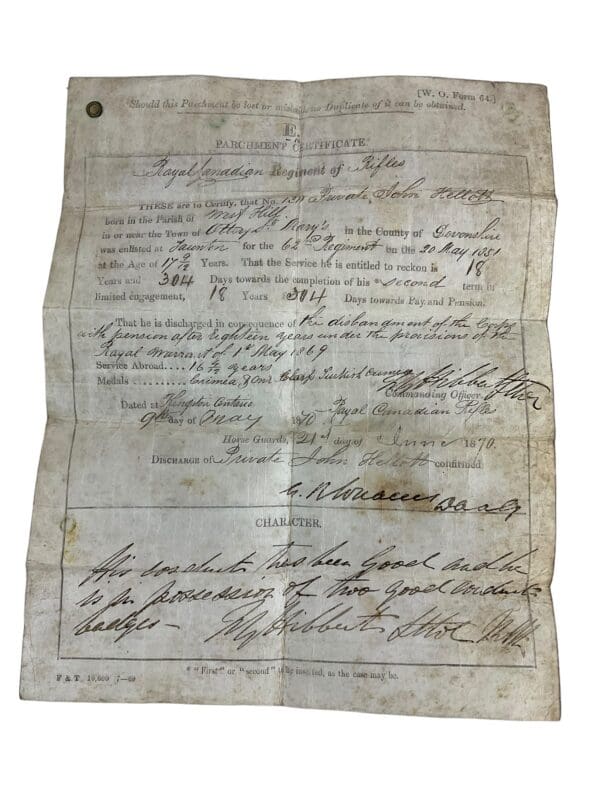 [W. O. Form 64.]
Should this Parchment be lost or mislaid, no Duplicate of it can be obtained.
E.
PARCHMENT CERTIFICATE.
Royal Canadian Regiment of Rifles
THESE are to Certify, that No. Private John Hellott
born in the Parish of West Hill
in or near the Town of Ottery St Mary's in the County of Devonshire
was enlisted at Taunton for the 62nd Regiment on the 20 May 1851
at the Age of 17 9/12 Years. That the Service he is entitled to reckon is 18
Years and 304 Days towards the completion of his *second term in
limited engagement, 18 Years 304 Days towards Pay and Pension.
That he is discharged in consequence of the disbandment of the Corps
with pension after Eighteen years under the provisions of the
Royal Warrant of 1st May 1869
Service Abroad.... 16 years
Medals ..... Crimea & One Clasp Turkish Crimea
Commanding Officer.
Dated at Kingston Ontario Royal Canadian Rifles
9th day of May 1870
Horse Guards, 21st day of June 1870.
DISCHARGE of Private John Hellott confirmed
CHARACTER.
His conduct has been Good and he
is in possession of two good conduct
badges — Hibbert
* "First" or "second" to be inserted, as the case may be.
F & T. 10,000 7—69